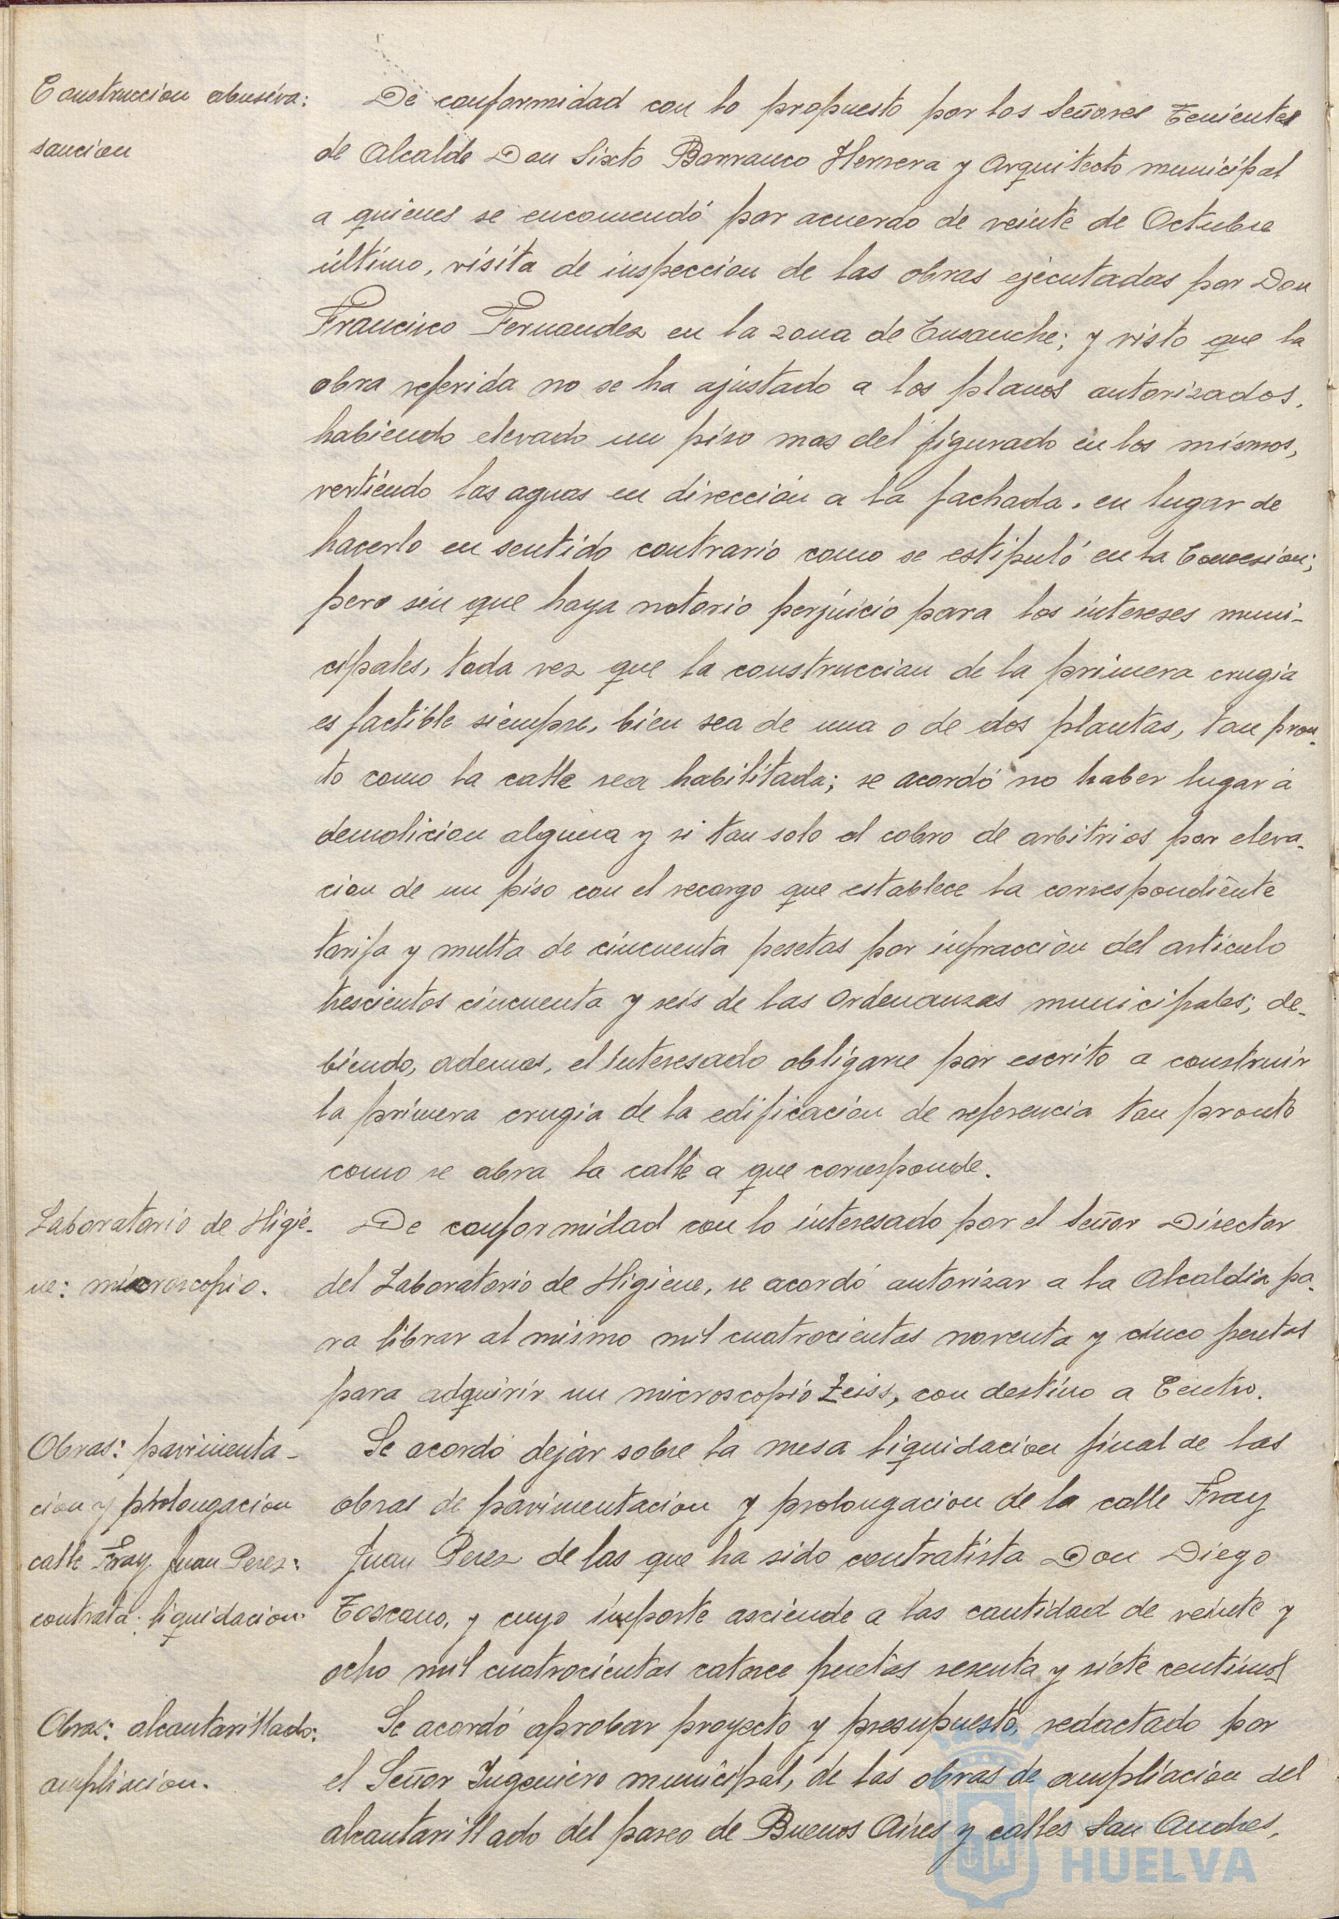 Construccion abusiva:
sancion
De conformidad con lo propuesto por los Señores Tenientes
de Alcalde Don Sixto Barranco Herrera y Arquitecto municipal
a quienes se encomendó por acuerdo de veinte de Octubre
último, visita de inspeccion de las obras ejecutadas por Don
Francisco Fernandez en la zona de Ensanche; y visto que la
obra referida no se ha ajustado a los planos autorizados,
habiendo elevado un piso mas del figurado en los mismos,
vertiendo las aguas en dirección a la fachada, en lugar de
hacerlo en sentido contrario como se estipuló en la Concesion;
pero sin que haya notorio perjuicio para los intereses muni-
cipales, toda vez que la construccion de la primera crugia
es factible siempre, bien sea de una o de dos plantas, tan pron-
to como la calle sea habilitada; se acordó no haber lugar á
demolicion alguna y si tan solo el cobro de arbitrios por eleva-
cion de un piso con el recargo que establece la correspondiente
tarifa y multa de cincuenta pesetas por infracción del articulo
trescientos cincuenta y seis de las Ordenanzas municipales; de-
biendo, ademas, el interesado obligarse por escrito a construir
la primera crugia de la edificación de referencia tan pronto
como se abra la calle a que corresponde.
Laboratorio de Higie-
ne: microscopio.
De conformidad con lo interesado por el Señor Director
del Laboratorio de Higiene, se acordó autorizar a la Alcaldia pa-
ra librar al mismo mil cuatrocientas noventa y cinco pesetas
para adquirir un microscopio Zeiss, con destino a Centro.
Obras: pavimenta-
cion y prolongacion
calle Fray Juan Perez:
contrata: liquidacion
Se acordó dejar sobre la mesa liquidacion final de las
obras de pavimentacion y prolongacion de la calle Fray
Juan Perez de las que ha sido contratista Don Diego
Toscano, y cuyo importe asciende a las cantidad de veinte y
ocho mil cuatrocientas catorce pesetas sesenta y siete centimos
Obras: alcantarillado:
ampliacion.
Se acordó aprobar proyecto y presupuesto, redactado por
el Señor Ingeniero municipal, de las obras de ampliacion del
alcantarillado del paseo de Buenos Aires y calles San Andres,
HUELVA